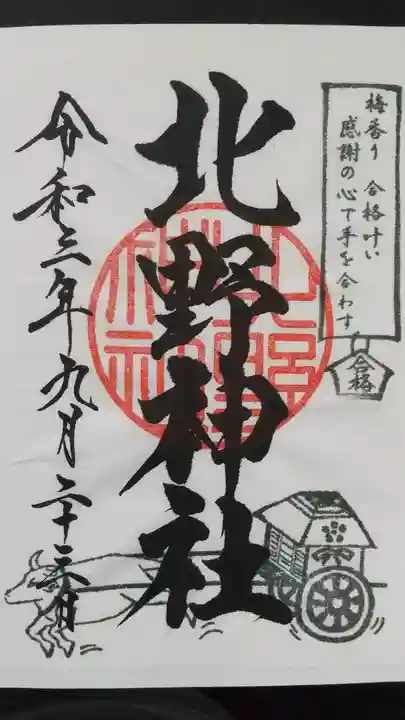 梅香り 合格叶い
感謝の心で手を合わす
合格
北野神社
北野神社
令和三年九月二十三日